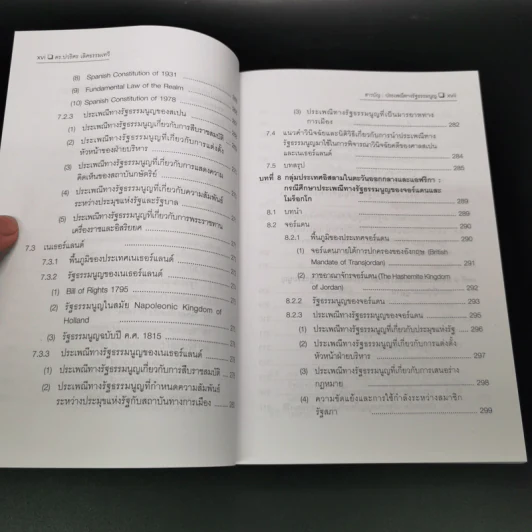 ดร.ปาริศา เลิศธรรมเทวี
(8) Spanish Constitution of 1931
(9) Fundamental Law of the Realm
(10) Spanish Constitution of 1978
7.2.3 ประเพณีทางรัฐธรรมนูญของสเปน
(1) ประเพณีทางรัฐธรรมนูญเกี่ยวกับการสืบราชสมบัติ
(2) ประเพณีทางรัฐธรรมนูญที่เกี่ยวกับการแต่งตั้ง
หัวหน้าของฝ่ายบริหาร
(3) ประเพณีทางรัฐธรรมนูญที่เกี่ยวกับการแสดงความ
คิดเห็นของสถาบันกษัตริย์
(4) ประเพณีทางรัฐธรรมนูญที่เกี่ยวกับความสัมพันธ์
ระหว่างประมุขแห่งรัฐและรัฐบาล
(5) ประเพณีทางรัฐธรรมนูญที่เกี่ยวกับการพระราชทาน
เครื่องราชและอิสริยยศ
7.3 เนเธอร์แลนด์
7.3.1 พื้นภูมิของประเทศเนเธอร์แลนด์
7.3.2 รัฐธรรมนูญของเนเธอร์แลนด์
(1) Bill of Rights 1795
(2) รัฐธรรมนูญในสมัย Napoleonic Kingdom of
Holland
(3) รัฐธรรมนูญฉบับปี ค.ศ. 1815
7.3.3 ประเพณีทางรัฐธรรมนูญของเนเธอร์แลนด์
(1) ประเพณีทางรัฐธรรมนูญเกี่ยวกับการสืบราชสมบัติ
(2) ประเพณีทางรัฐธรรมนูญที่กำหนดความสัมพันธ์
ระหว่างประมุขแห่งรัฐกับสถาบันทางการเมือง
สารบัญ : ประเพณีทางรัฐธรรมนูญ
(3) ประเพณีทางรัฐธรรมนูญที่เป็นมารยาททาง
การเมือง 282
7.4 แนวคำวินิจฉัยและนิติวิธีเกี่ยวกับการนำประเพณีทาง
รัฐธรรมนูญมาใช้ในการพิจารณาวินิจฉัยคดีของศาลสเปน
และเนเธอร์แลนด์ 284
7.5 บทสรุป 285
บทที่ 8 กลุ่มประเทศอิสลามในตะวันออกกลางและแอฟริกา :
กรณีศึกษาประเพณีทางรัฐธรรมนูญของจอร์แดนและ
โมร็อกโก 289
8.1 บทนำ 289
8.2 จอร์แดน 290
8.2.1 พื้นภูมิของประเทศจอร์แดน 290
(1) จอร์แดนภายใต้การปกครองของอังกฤษ (British
Mandate of Transjordan) 291
(2) ราชอาณาจักรจอร์แดน (The Hashemite Kingdom
of Jordan) 292
8.2.2 รัฐธรรมนูญของจอร์แดน 293
8.2.3 ประเพณีทางรัฐธรรมนูญของจอร์แดน 295
(1) ประเพณีทางรัฐธรรมนูญที่เกี่ยวกับประมุขแห่งรัฐ 296
(2) ประเพณีทางรัฐธรรมนูญที่เกี่ยวกับการแต่งตั้ง
หัวหน้าฝ่ายบริหาร 297
(3) ประเพณีทางรัฐธรรมนูญที่เกี่ยวกับการเสนอร่าง
กฎหมาย 298
(4) ความขัดแย้งและการใช้กำลังระหว่างสมาชิก
รัฐสภา 299